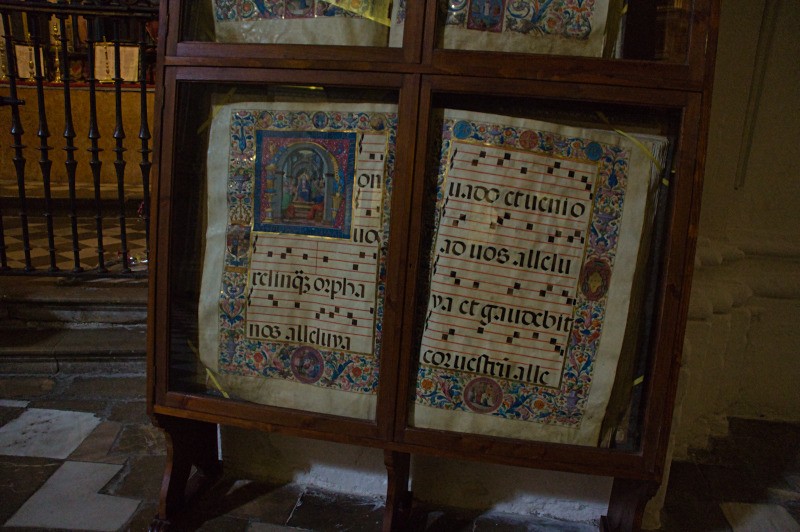 on
uo
relinq̃; orpha
nos alleluya
uado et uenio
ad uos allelu
ya et gaudebit
cor uestrũ alle